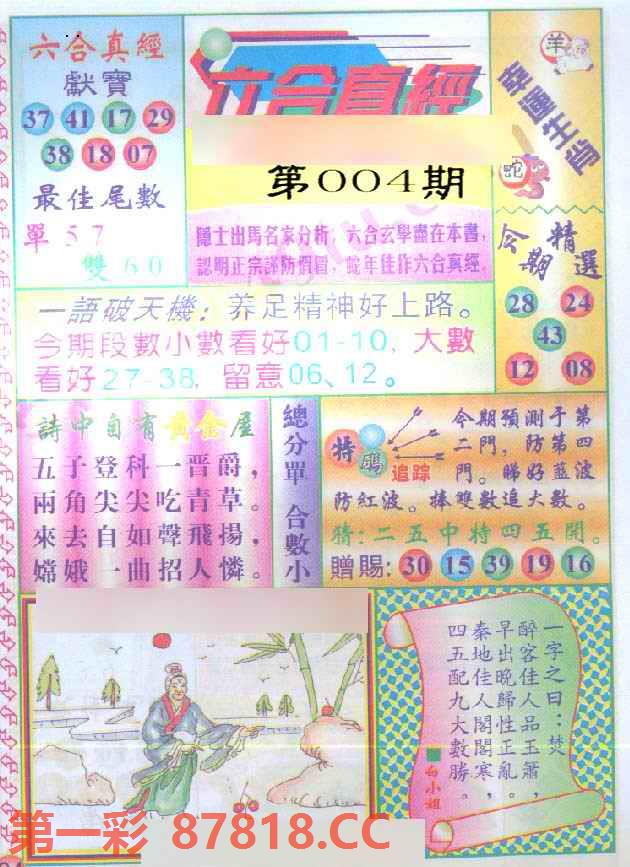 六合真經
獻寶
37 41 17 29
38 18 07
最佳尾數
單57
雙60
六合真經
第004期
隱士出馬名家分析，六合玄學盡在本書，
認明正宗謹防假冒，蛇年佳作六合真經。
羊
幸運生肖
蛇
今期精選
28 24
43
12 08
一語破天機：养足精神好上路。
今期段數小數看好01-10，大數
看好27-38，留意06、12。
詩中自有黃金屋
五子登科一晋爵，
兩角尖尖吃青草。
來去自如聲飛揚，
嫦娥一曲招人憐。
總分單 合數小
特碼
追踪
今期預測于第
二門，防第四
門。睇好藍波
防紅波。棒雙數追大數。
猜：二五中特四五開。
贈賜：30 15 39 19 16
一字之曰：焚
醉客佳人品玉簫，
早出晚歸性正亂。
秦地佳人閣閣寒，
四五配九大數勝。
白小姐
第一彩 87818.CC